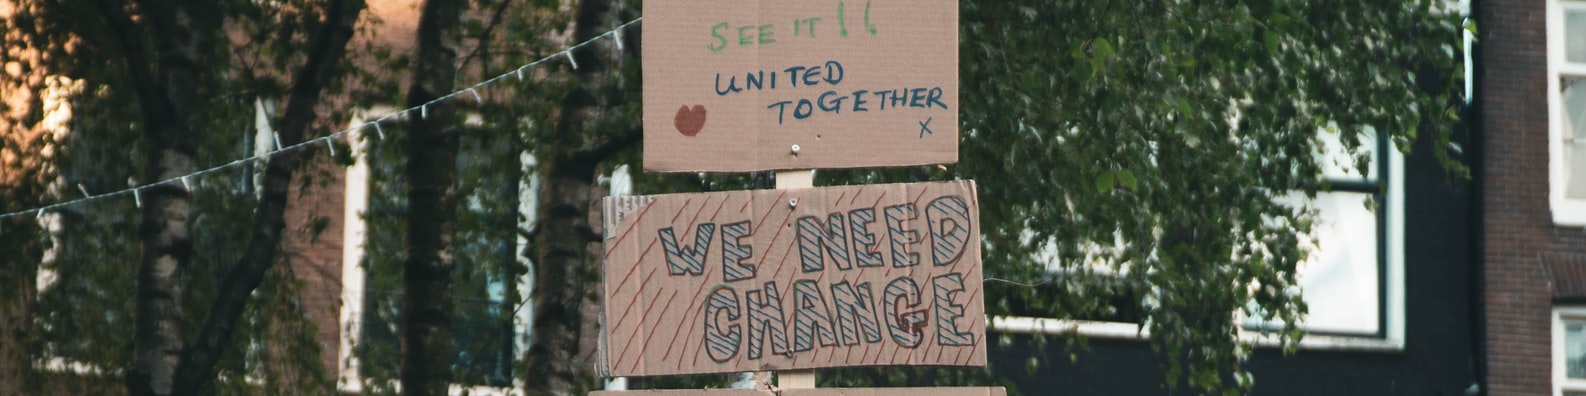 SEE IT !!
UNITED
TOGETHER
X
WE NEED
CHANGE